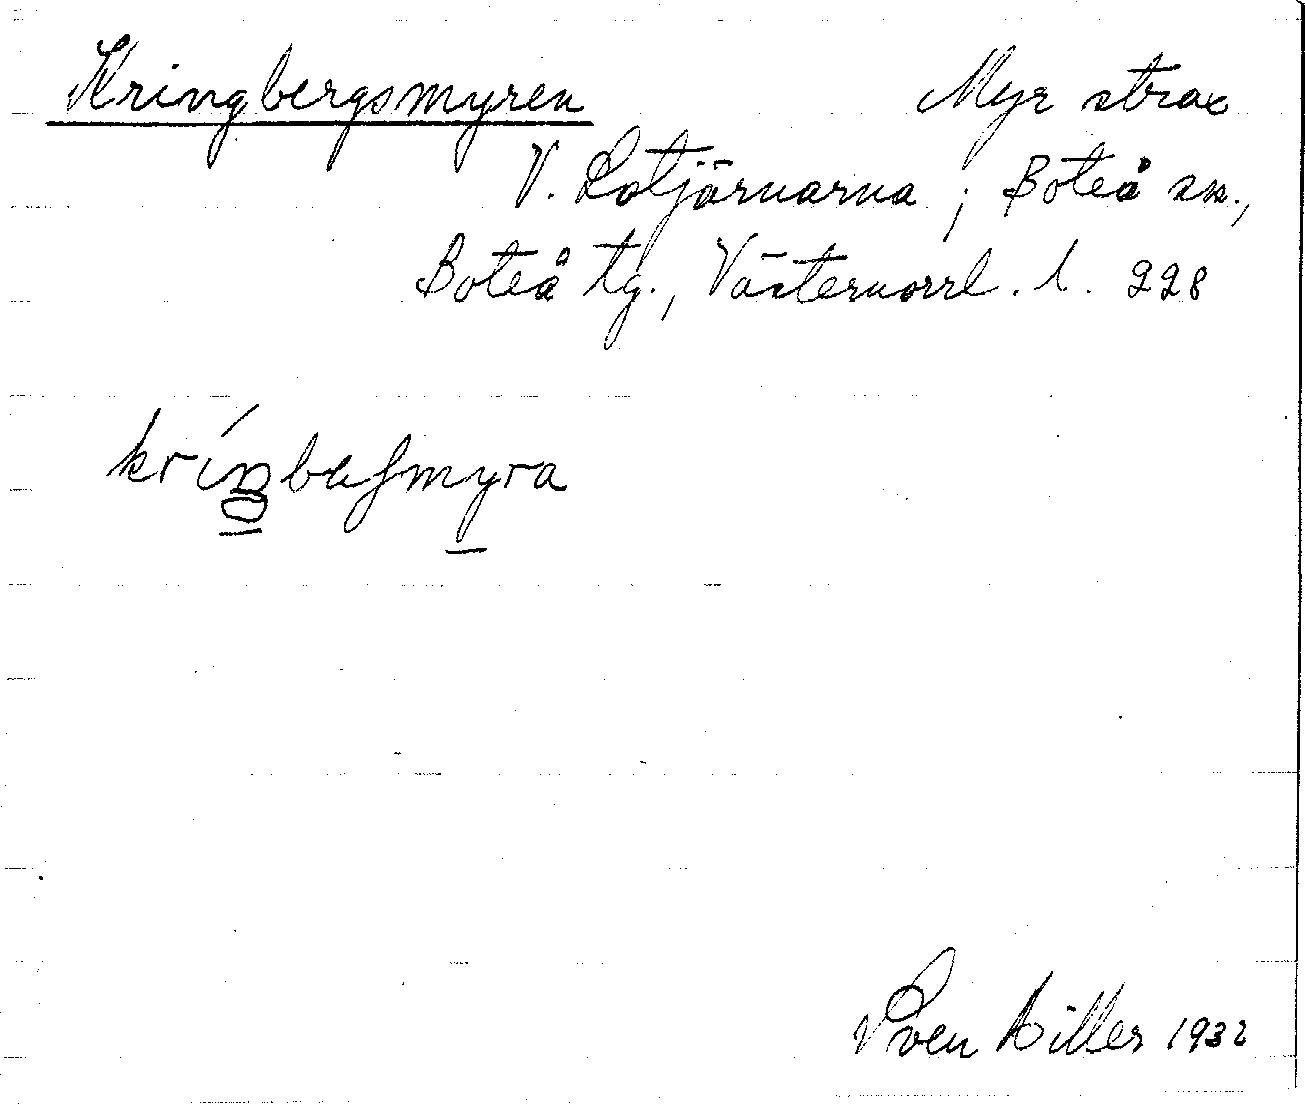 Kringbergsmyren Myr strax
V. Lotjärnarna; Boteå sn.,
Boteå tg., Västernorrl. l. 228
Sven Hiller 1932